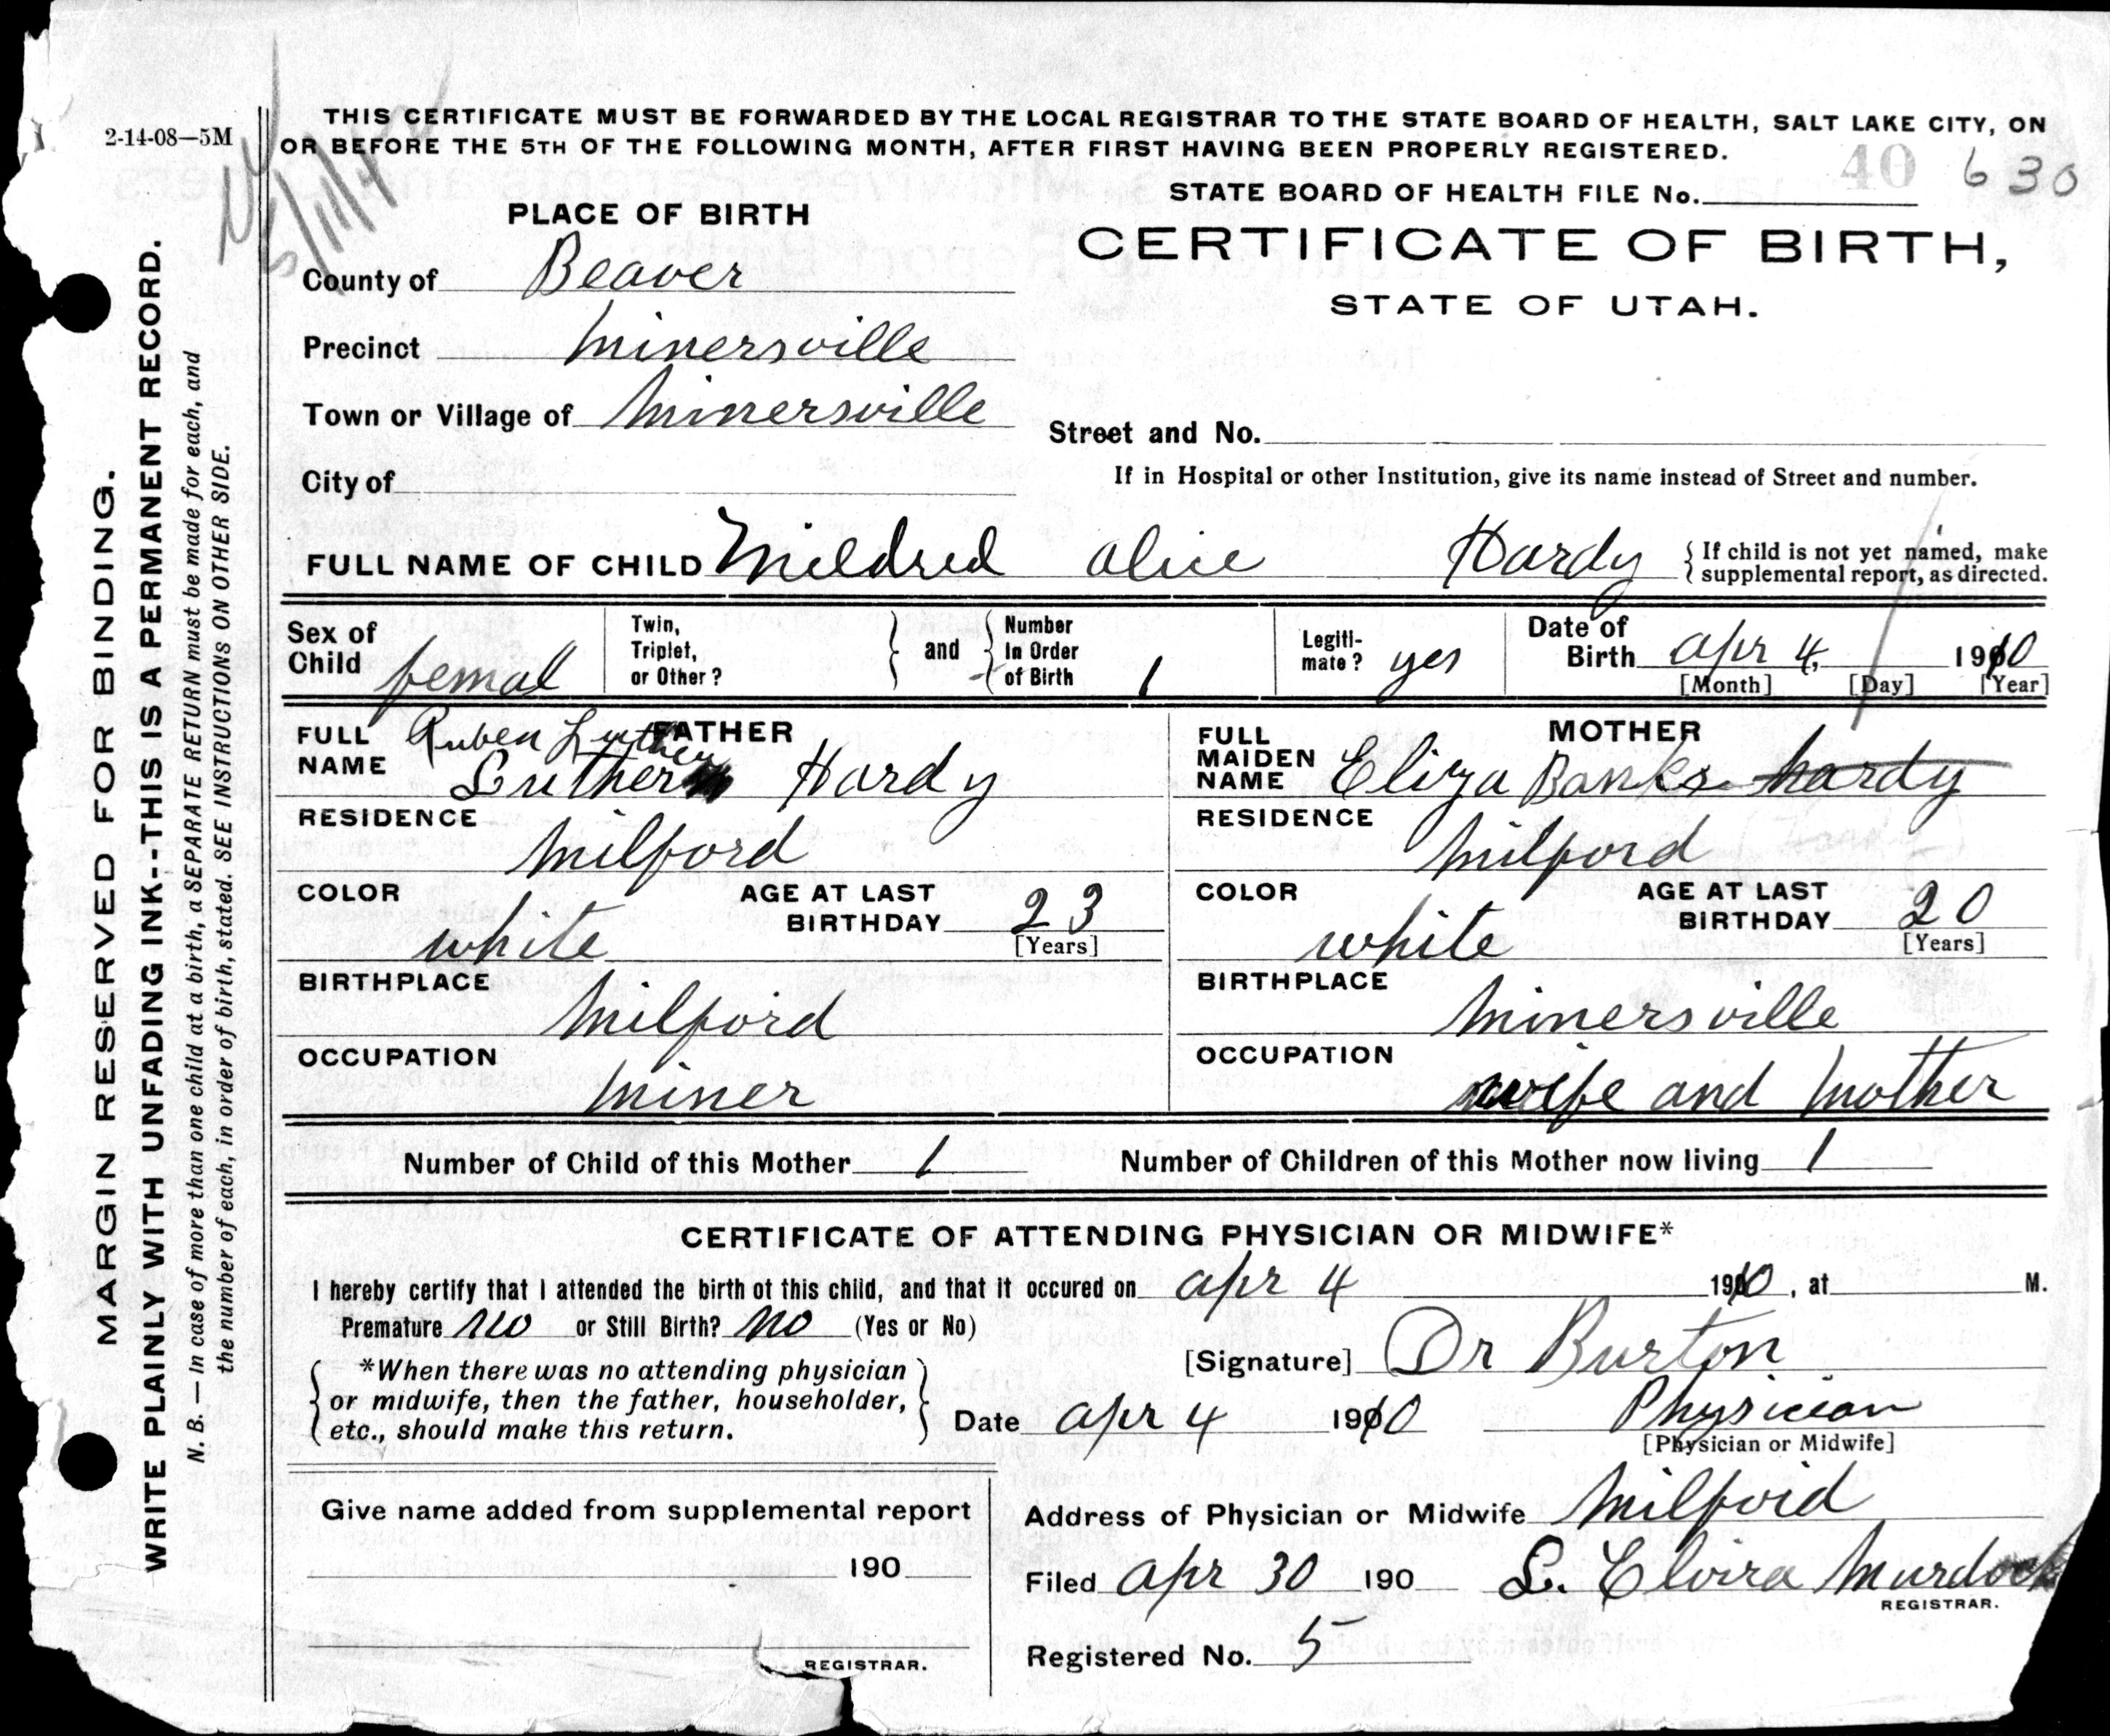 2-14-08—5M
THIS CERTIFICATE MUST BE FORWARDED BY THE LOCAL REGISTRAR TO THE STATE BOARD OF HEALTH, SALT LAKE CITY, ON
OR BEFORE THE 5TH OF THE FOLLOWING MONTH, AFTER FIRST HAVING BEEN PROPERLY REGISTERED.
40 630
STATE BOARD OF HEALTH FILE No.
PLACE OF BIRTH
CERTIFICATE OF BIRTH,
STATE OF UTAH.
County of Beaver
Precinct Minersville
Town or Village of Minersville
Street and No.
City of
If in Hospital or other Institution, give its name instead of Street and number.
FULL NAME OF CHILD Mildred Alice Hardy
If child is not yet named, make
supplemental report, as directed.
Sex of
Child femal
Twin,
Triplet,
or Other?
and
Number
In Order
of Birth 1
Legiti-
mate? yes
Date of
Birth Apr 4, 1910
[Month] [Day] [Year]
FATHER
FULL
NAME
Ruben Luther
Luther Hardy
MOTHER
FULL
MAIDEN
NAME Eliza Banks Hardy
RESIDENCE
Milford
RESIDENCE
Milford
COLOR
white
AGE AT LAST
BIRTHDAY 23
[Years]
COLOR
white
AGE AT LAST
BIRTHDAY 20
[Years]
BIRTHPLACE
Milford
BIRTHPLACE
Minersville
OCCUPATION
Miner
OCCUPATION
wife and Mother
Number of Child of this Mother 1
Number of Children of this Mother now living 1
CERTIFICATE OF ATTENDING PHYSICIAN OR MIDWIFE*
I hereby certify that I attended the birth ot this child, and that it occured on Apr 4 1910, at M.
Premature No or Still Birth? No (Yes or No)
[Signature] Dr Burton
*When there was no attending physician
or midwife, then the father, householder,
etc., should make this return.
Date Apr 4 1910
Physician
[Physician or Midwife]
Give name added from supplemental report
190
REGISTRAR.
Address of Physician or Midwife Milford
Filed Apr 30 190 L. Elvira Murdock
REGISTRAR.
Registered No. 5
MARGIN RESERVED FOR BINDING.
WRITE PLAINLY WITH UNFADING INK--THIS IS A PERMANENT RECORD.
N. B. — In case of more than one child at a birth, a SEPARATE RETURN must be made for each, and
the number of each, in order of birth, stated. SEE INSTRUCTIONS ON OTHER SIDE.